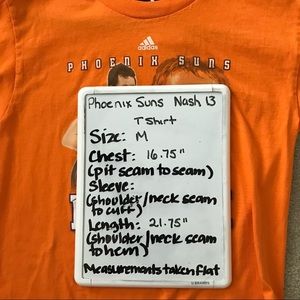 adidas
PHOENIX SUNS
Phoenix Suns Nash 13
T Shirt
Size: M
Chest: 16.75"
(pit seam to seam)
Sleeve:
(shoulder/neck seam
to cuff)
Length: 21.75"
(shoulder/neck seam
to hem)
Measurements taken flat